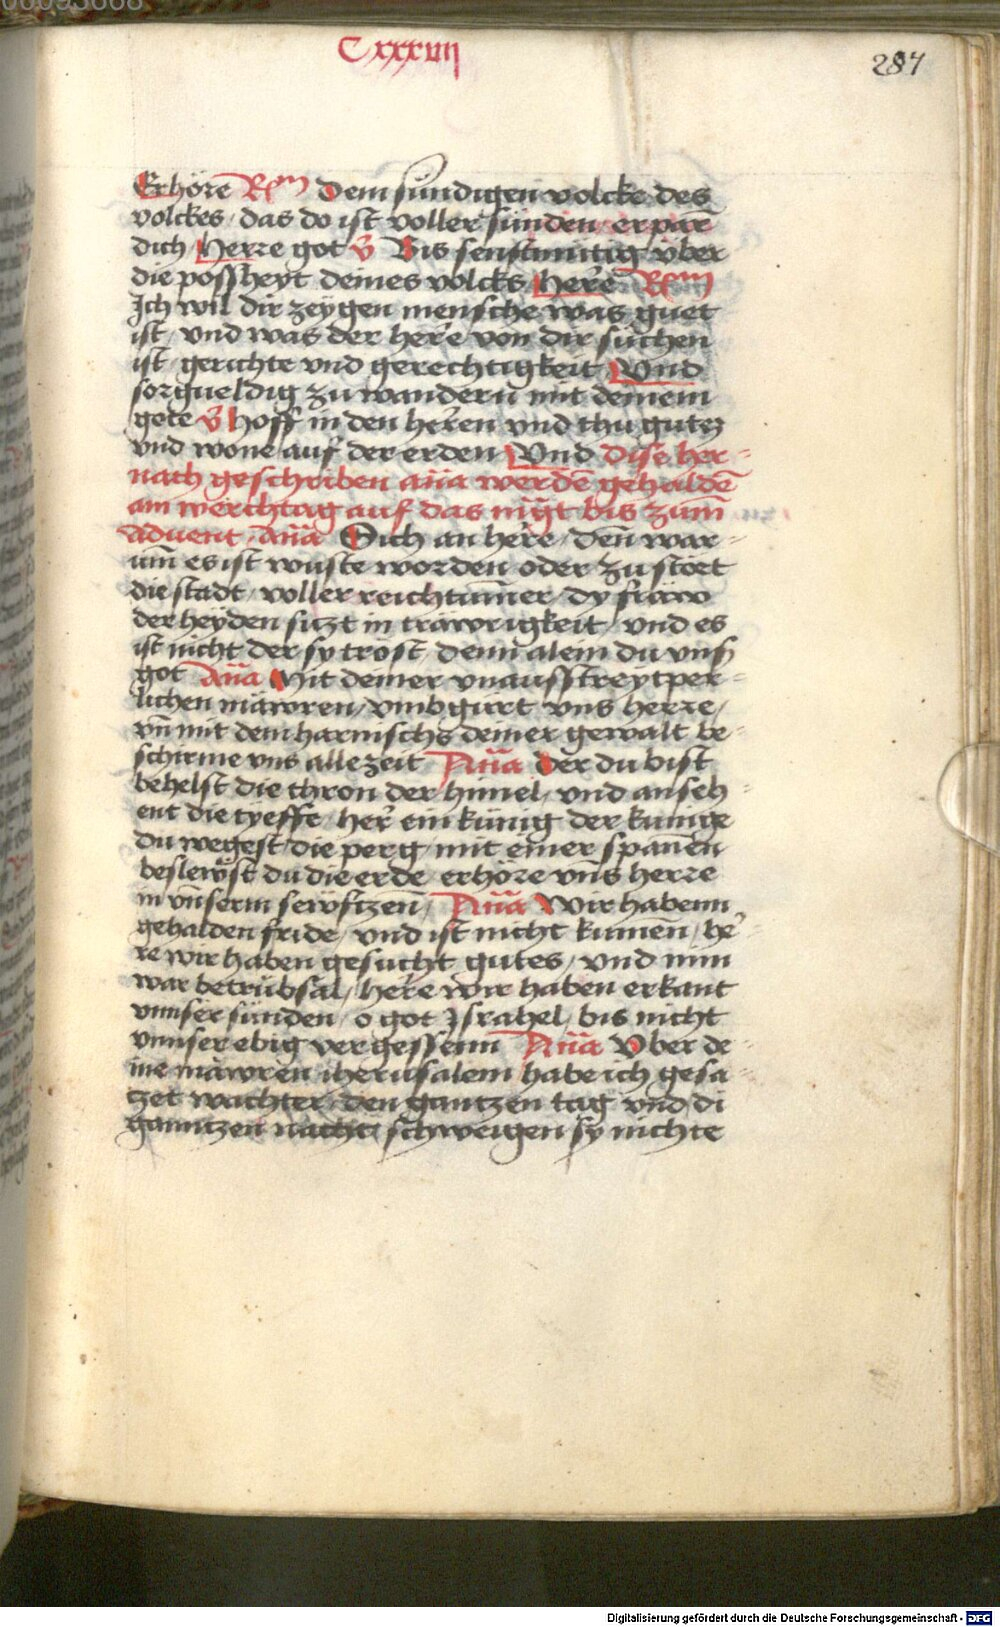 Cxxxvii
287
Erhöre Rm Dem sündigen volcke des
volckes / das do ist voller sünden / erparm̄
dich Herre got V Bis senftmütig über
die possheyt deines volcks Here Rm
Ich wil dir zeygen mensche was guet
ist / und was der here von dir suchen
ist / gerichte vnd gerechtigkeit / Vnd
sorgueldig zu wandern mit deinem
gote V Hoff in den heren vnd thu gutez
vnd wone auf der erden Vnd dise her-
nach geschriben an̄a werden gehaldē
am werchtag auf das nügt bis zum̄
aduent / An̄a Sich an here / den̄ war-
um̄ es ist wuste worden oder zu stort
die stadt / voller reichtum̄er / dy fraw
der heyden siczt in trawrigkeit / vnd es
ist nicht der sy tröst / denn alein du vnß
got An̄a Mit deiner vnausstreytper-
lichen mawren / vmbgürt vns herre /
vn̄ mit dem harnischs deiner gewalt be-
schirme vns allezeit An̄a der du bist
behelst die thron der himel / vnd anseh-
ent die tyeffe / her ein künig der kunige
Du wegest die perg / mit einer spannen
beslewst du die erde / erhöre vns herre
in vnserm sewftzen / An̄a Wir habenn
gehalden fride / vnd ist nicht kumen / he-
re wir haben gesucht gutes / vnd nim
war betrübsal / here wir haben erkant
vnnser sünden / o got Israhel bis nicht
vnnser ebig vergessenn An̄a Vber de-
ine mawren iherusalem habe ich gesa-
czet wachter / den gantzen tag vnd di
ganntzen nacht / schweigen sy nichte
Digitalisierung gefördert durch die Deutsche Forschungsgemeinschaft - DFG